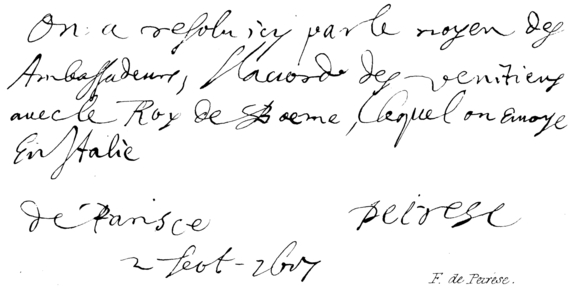 On a resolu icy par le moyen des
Ambassadeurs, l'accord des venitiens
avec le Roy de Boeme, lequel on envoye
En Italie
de Paris ce
peiresc
2 sept -
F. de Peiresc.